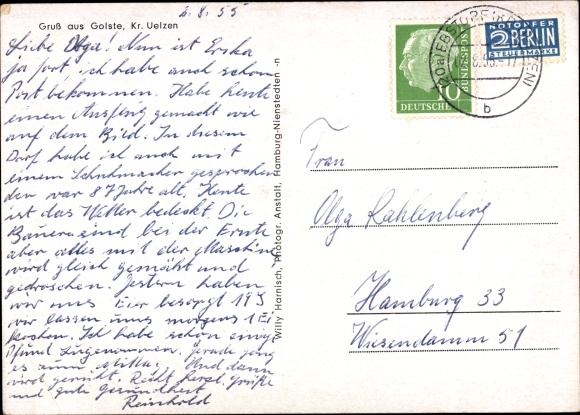 2.8.55
Gruß aus Golste, Kr. Uelzen
Liebe Olga! Nun ist Erika
ja fort, ich habe auch schon
Post bekommen. Habe heute
einen Ausflug gemacht wie
auf dem Bild. In diesem
Dorf habe ich auch mit
einem Schuhmacher gesprochen
der war 87 Jahre alt. Heute
ist das Wetter bedeckt. Die
Bauern sind bei der Ernte
aber alles mit der Maschin
wird gleich gemäht und
gedroschen. Gestern haben
wir uns Eier besorgt
wir lassen uns morgens 1 Ei
kochen. Ich habe schon einige
Pfund zugenommen. Gerade
es zum Und dann
wird geruht. Recht herzl. Grüße
und gute Gesundheit
Reinhold
Willy Harnisch, Photogr. Anstalt, Hamburg-Nienstedten -n
10
DEUTSCHE
BUNDESPOST
EBSTORF (KR UELZEN)
b
NOTOPFER
2 BERLIN
STEUERMARKE
Frau
Olga Kahlenberg
Hamburg 33
Wiesendamm 51